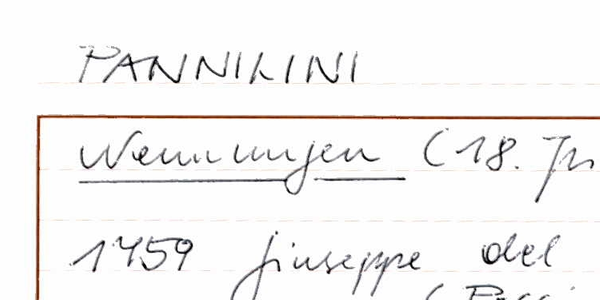 PANNILINI
Nennungen (18. Jh
1759 Giuseppe del